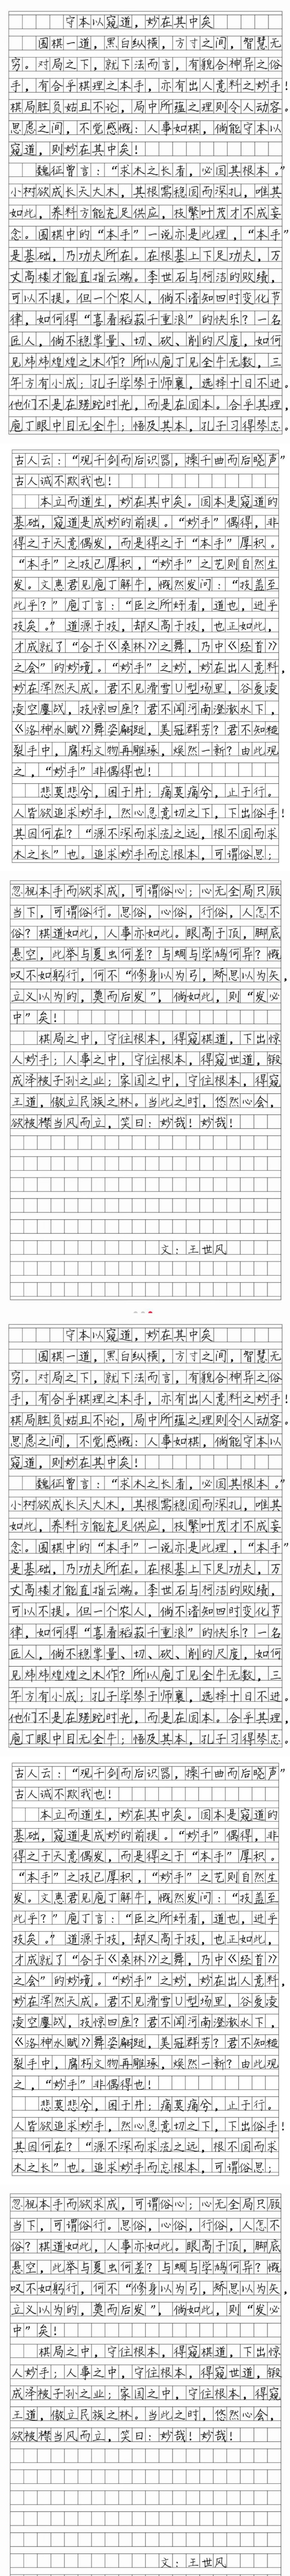 守本以窥道，妙在其中矣
围棋一道，黑白纵横，方寸之间，智慧无
穷。对局之下，就下法而言，有貌合神异之俗
手，有合乎棋理之本手，亦有出人意料之妙手！
棋局胜负姑且不论，局中所蕴之理则令人动容。
思虑之间，不觉感慨：人事如棋，倘能守本以
窥道，则妙在其中矣！
魏征曾言：“求木之长者，必固其根本。”
小树欲成长天大木，其根需稳固而深扎，唯其
如此，养料方能充足供应，枝繁叶茂才不成妄
念。围棋中的“本手”一说亦是此理，“本手”
是基础，乃功夫所在。在根基上下足功夫，万
丈高楼才能直指云端。李世石与柯洁的败绩，
可以不提。但一个农人，倘不谙知四时变化节
律，如何得“喜看稻菽千重浪”的快乐？一名
匠人，倘不稳掌量、切、砍、削的尺度，如何
见炜炜煌煌之木作？所以庖丁见全牛无数，三
年方有小成；孔子学琴于师襄，选择十日不进。
他们不是在蹉跎时光，而是在固本。合乎其理，
庖丁眼中目无全牛；悟及其本，孔子习得琴志。
古人云：“观千剑而后识器，操千曲而后晓声”
古人诚不欺我也！
本立而道生，妙在其中矣。固本是窥道的
基础，窥道是成妙的前提。“妙手”偶得，非
得之于天意偶发，而是得之于“本手”厚积。
“本手”之技已厚积，“妙手”之艺则自然生
发。文惠君见庖丁解牛，慨然发问：“技盖至
此乎？”庖丁言：“臣之所好者，道也，进乎
技矣。”道源于技，却又高于技，也正如此，
才成就了“合于《桑林》之舞，乃中《经首》
之会”的妙境。“妙手”之妙，妙在出人意料，
妙在浑然天成。君不见滑雪U型场里，谷爱凌
凌空鏖战，技惊四座？君不闻河南澄澈水下，
《洛神水赋》舞姿翩跹，美冠群芳？君不知糙
裂手中，腐朽文物再雕琢，焕然一新？由此观
之，“妙手”非偶得也！
悲莫悲兮，困于井；痛莫痛兮，止于行。
人皆欲追求妙手，然心急意切之下，下出俗手！
其因何在？“源不深而求流之远，根不固而求
木之长”也。追求妙手而忘根本，可谓俗思；
忽视本手而欲求成，可谓俗心；心无全局只顾
当下，可谓俗行。思俗，心俗，行俗，人怎不
俗？棋道如此，人事亦如此。眼高于顶，脚底
悬空，此举与夏虫何差？与蜩与学鸠何异？慨
叹不如躬行，何不“修身以为弓，矫思以为矢，
立义以为的，奠而后发”，倘如此，则“发必
中”矣！
棋局之中，守住根本，得窥棋道，下出惊
人妙手；人事之中，守住根本，得窥世道，锻
成泽被子孙之业；家国之中，守住根本，得窥
王道，傲立民族之林。当此之时，悠然心会，
欲披襟当风而立，笑曰：妙哉！妙哉！
文：王世风
守本以窥道，妙在其中矣
围棋一道，黑白纵横，方寸之间，智慧无
穷。对局之下，就下法而言，有貌合神异之俗
手，有合乎棋理之本手，亦有出人意料之妙手！
棋局胜负姑且不论，局中所蕴之理则令人动容。
思虑之间，不觉感慨：人事如棋，倘能守本以
窥道，则妙在其中矣！
魏征曾言：“求木之长者，必固其根本。”
小树欲成长天大木，其根需稳固而深扎，唯其
如此，养料方能充足供应，枝繁叶茂才不成妄
念。围棋中的“本手”一说亦是此理，“本手”
是基础，乃功夫所在。在根基上下足功夫，万
丈高楼才能直指云端。李世石与柯洁的败绩，
可以不提。但一个农人，倘不谙知四时变化节
律，如何得“喜看稻菽千重浪”的快乐？一名
匠人，倘不稳掌量、切、砍、削的尺度，如何
见炜炜煌煌之木作？所以庖丁见全牛无数，三
年方有小成；孔子学琴于师襄，选择十日不进。
他们不是在蹉跎时光，而是在固本。合乎其理，
庖丁眼中目无全牛；悟及其本，孔子习得琴志。
古人云：“观千剑而后识器，操千曲而后晓声”
古人诚不欺我也！
本立而道生，妙在其中矣。固本是窥道的
基础，窥道是成妙的前提。“妙手”偶得，非
得之于天意偶发，而是得之于“本手”厚积。
“本手”之技已厚积，“妙手”之艺则自然生
发。文惠君见庖丁解牛，慨然发问：“技盖至
此乎？”庖丁言：“臣之所好者，道也，进乎
技矣。”道源于技，却又高于技，也正如此，
才成就了“合于《桑林》之舞，乃中《经首》
之会”的妙境。“妙手”之妙，妙在出人意料，
妙在浑然天成。君不见滑雪U型场里，谷爱凌
凌空鏖战，技惊四座？君不闻河南澄澈水下，
《洛神水赋》舞姿翩跹，美冠群芳？君不知糙
裂手中，腐朽文物再雕琢，焕然一新？由此观
之，“妙手”非偶得也！
悲莫悲兮，困于井；痛莫痛兮，止于行。
人皆欲追求妙手，然心急意切之下，下出俗手！
其因何在？“源不深而求流之远，根不固而求
木之长”也。追求妙手而忘根本，可谓俗思；
忽视本手而欲求成，可谓俗心；心无全局只顾
当下，可谓俗行。思俗，心俗，行俗，人怎不
俗？棋道如此，人事亦如此。眼高于顶，脚底
悬空，此举与夏虫何差？与蜩与学鸠何异？慨
叹不如躬行，何不“修身以为弓，矫思以为矢，
立义以为的，奠而后发”，倘如此，则“发必
中”矣！
棋局之中，守住根本，得窥棋道，下出惊
人妙手；人事之中，守住根本，得窥世道，锻
成泽被子孙之业；家国之中，守住根本，得窥
王道，傲立民族之林。当此之时，悠然心会，
欲披襟当风而立，笑曰：妙哉！妙哉！
文：王世风